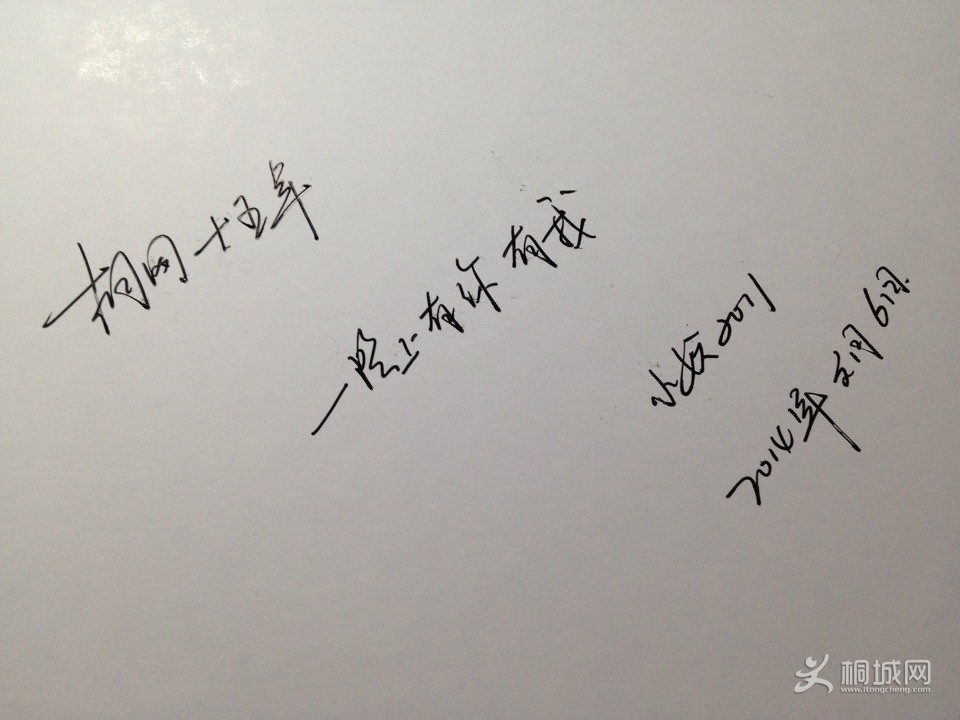 桐网十五年
一路上有你有我
2011
2014年2月6日
桐城网
www.itongcheng.com